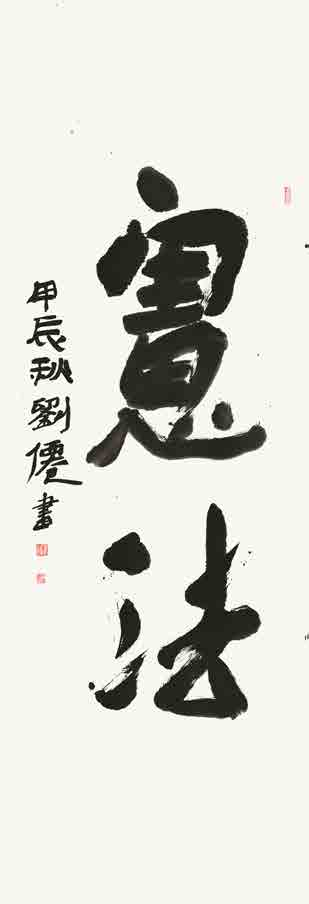 憲法
甲辰秋劉僊書